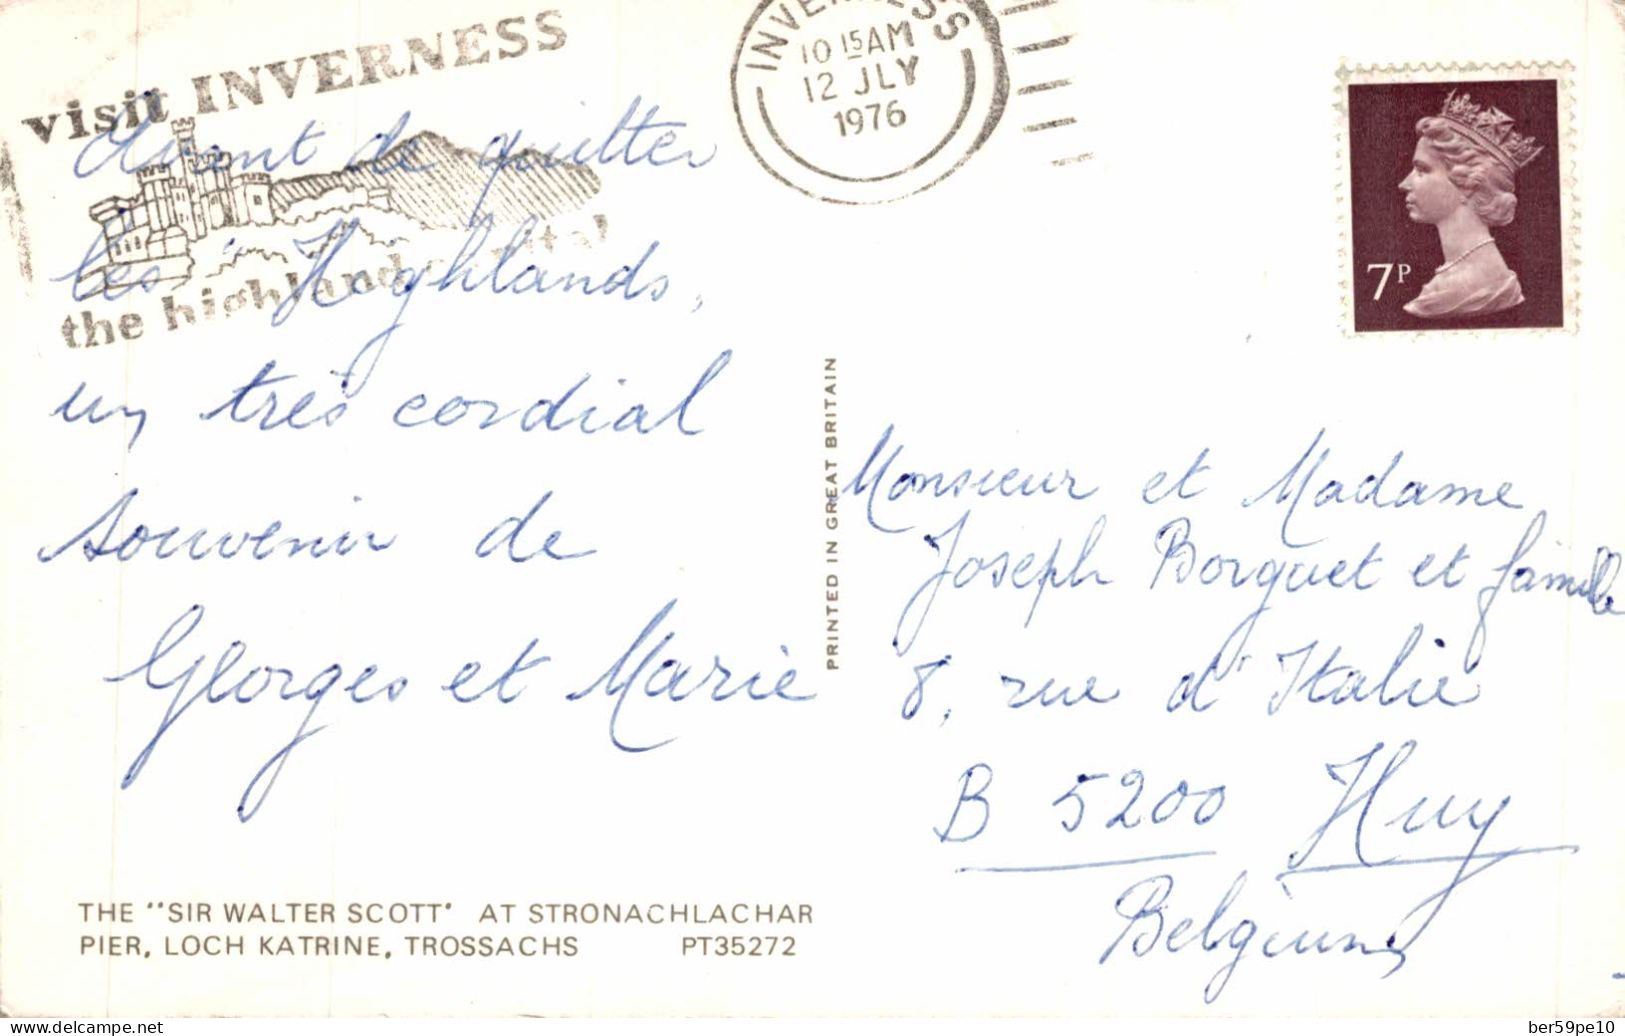 visit INVERNESS
the highland capital
INVERNESS
10 15 AM
12 JLY
1976
7P
Avant de quitter
les Highlands,
un très cordial
souvenir de
Georges et Marie
PRINTED IN GREAT BRITAIN
Monsieur et Madame
Joseph Borguet et famille
8, rue d'Italie
B 5200 Huy
Belgium
THE "SIR WALTER SCOTT" AT STRONACHLACHAR
PIER, LOCH KATRINE, TROSSACHS PT35272
ber59pe10